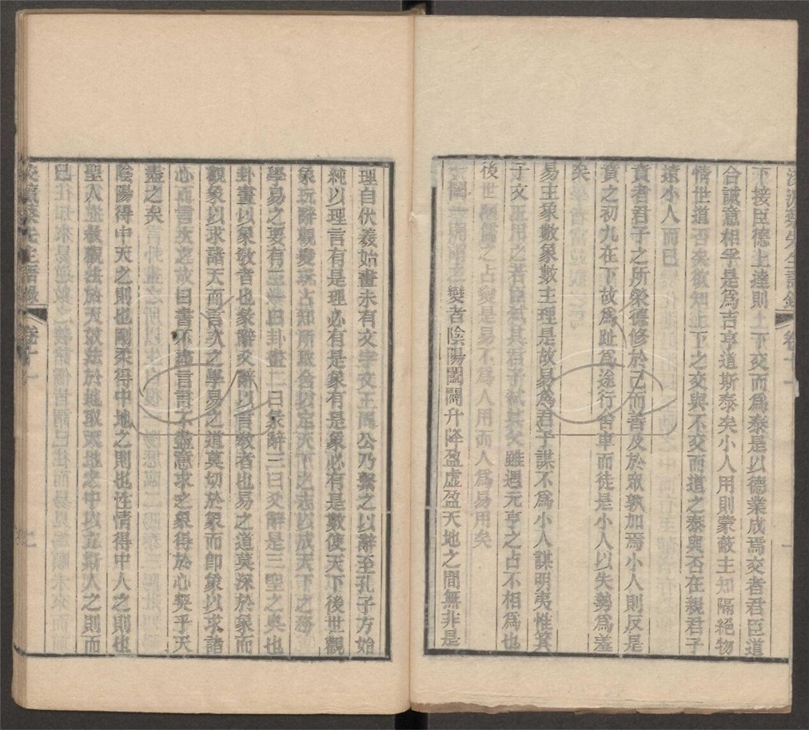 下接臣德上達則上下交而為泰是以德業成焉交者君臣道
合誠意相孚是為吉亨道斯泰矣小人用則蒙蔽主知隔絕物
情世道否矣欲知上下之交與不交而道之泰與否在親君子
遠小人而已
賁者君子之所榮德修於己而譽及於眾孰加焉小人則反是
賁之初九在下故為趾為塗行舍車而徒是小人以失勢為羞
矣
易主象數象數主理是故易為君子謀不為小人謀明夷惟箕
子文王用之若臣弒其君子弒其父雖遇元亨之占不相為也
後世 之占變是易不為人用而人為易用矣
變者陰陽闔闢升降盈虛盈天地之間無非是
理自伏羲始畫未有文字文王周公乃繫之以辭至孔子方始
純以理言有是理必有是象有是象必有是數使天下後世觀
象玩辭觀變玩占知所取舍以定天下之志以成天下之務
學易之要有三一曰卦畫二曰彖辭三曰爻辭是三聖之奧也
卦畫以象教者也彖辭爻辭以言教者也易之道莫深於象而
觀象以求諸天而言次之學易之道莫切於象而即象以求諸
心而言次之故曰書不盡言言不盡意求之象得於心契乎天
盡之矣
陰陽得中天之則也剛柔得中地之則也性情得中人之則也
聖人 法於天效法於地取天地之中以立斯人之則而
已
先生語錄 卷十一